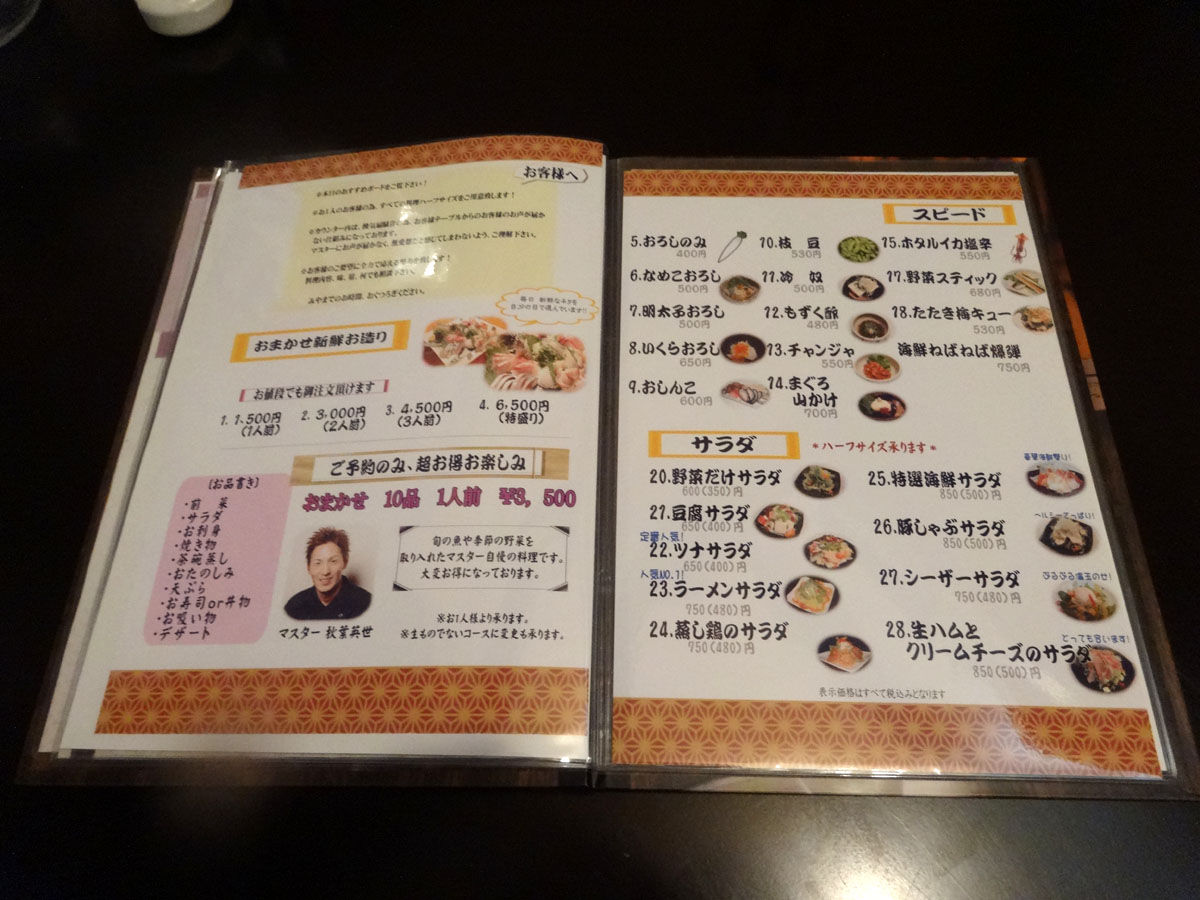 お客様へ
※本日のおすすめボードをご覧下さい!
※お1人のお客様の為、すべての料理ハーフサイズをご用意致します!
※カウンター内は、換気扇騒音の為、お客様テーブルからのお客様のお声が届か
ない仕組みになっております。
マスターにお声が届かなく、無愛想だと感じてしまわないよう、ご理解下さい。
※お客様のご要望に全力で応える努力を致します!
料理内容、味、量、何でも相談下さい。
みやまでのお時間、おくつろぎください。
毎日 新鮮なネタを
自分の目で選んでいます!!
おまかせ新鮮お造り
お値段でも御注文頂けます
1. 1,500円 2. 3,000円 3. 4,500円 4. 6,500円
(1人前) (2人前) (3人前) (特盛り)
ご予約のみ、超お得お楽しみ
おまかせ 10品 1人前 ¥3,500
(お品書き)
・前 菜
・サラダ
・お刺身
・焼き物
・茶碗蒸し
・おたのしみ
・天ぷら
・お寿司or丼物
・お吸い物
・デザート
旬の魚や季節の野菜を
取り入れたマスター自慢の料理です。
大変お得になっております。
マスター 秋葉英世
※お1人様より承ります。
※生ものでないコースに変更も承ります。
スピード
5.おろしのみ
400円
6.なめこおろし
500円
7.明太子おろし
500円
8.いくらおろし
650円
9.おしんこ
600円
10.枝 豆
530円
11.冷 奴
500円
12.もずく酢
480円
13.チャンジャ
550円
14.まぐろ
山かけ
700円
15.ホタルイカ塩辛
550円
17.野菜スティック
680円
18.たたき梅キュー
530円
海鮮ねばねば爆弾
750円
サラダ
*ハーフサイズ承ります*
20.野菜だけサラダ
600(350)円
21.豆腐サラダ
650(400)円
定番人気!
22.ツナサラダ
650(400)円
人気NO.1!
23.ラーメンサラダ
750(480)円
24.蒸し鶏のサラダ
750(480)円
25.特選海鮮サラダ
850(500)円
ヘルシーでさっぱり!
26.豚しゃぶサラダ
850(500)円
27.シーザーサラダ
750(480)円
ぷるぷる温玉のせ!
28.生ハムと
クリームチーズのサラダ
850(500)円
とっても合います!
表示価格はすべて税込みとなります